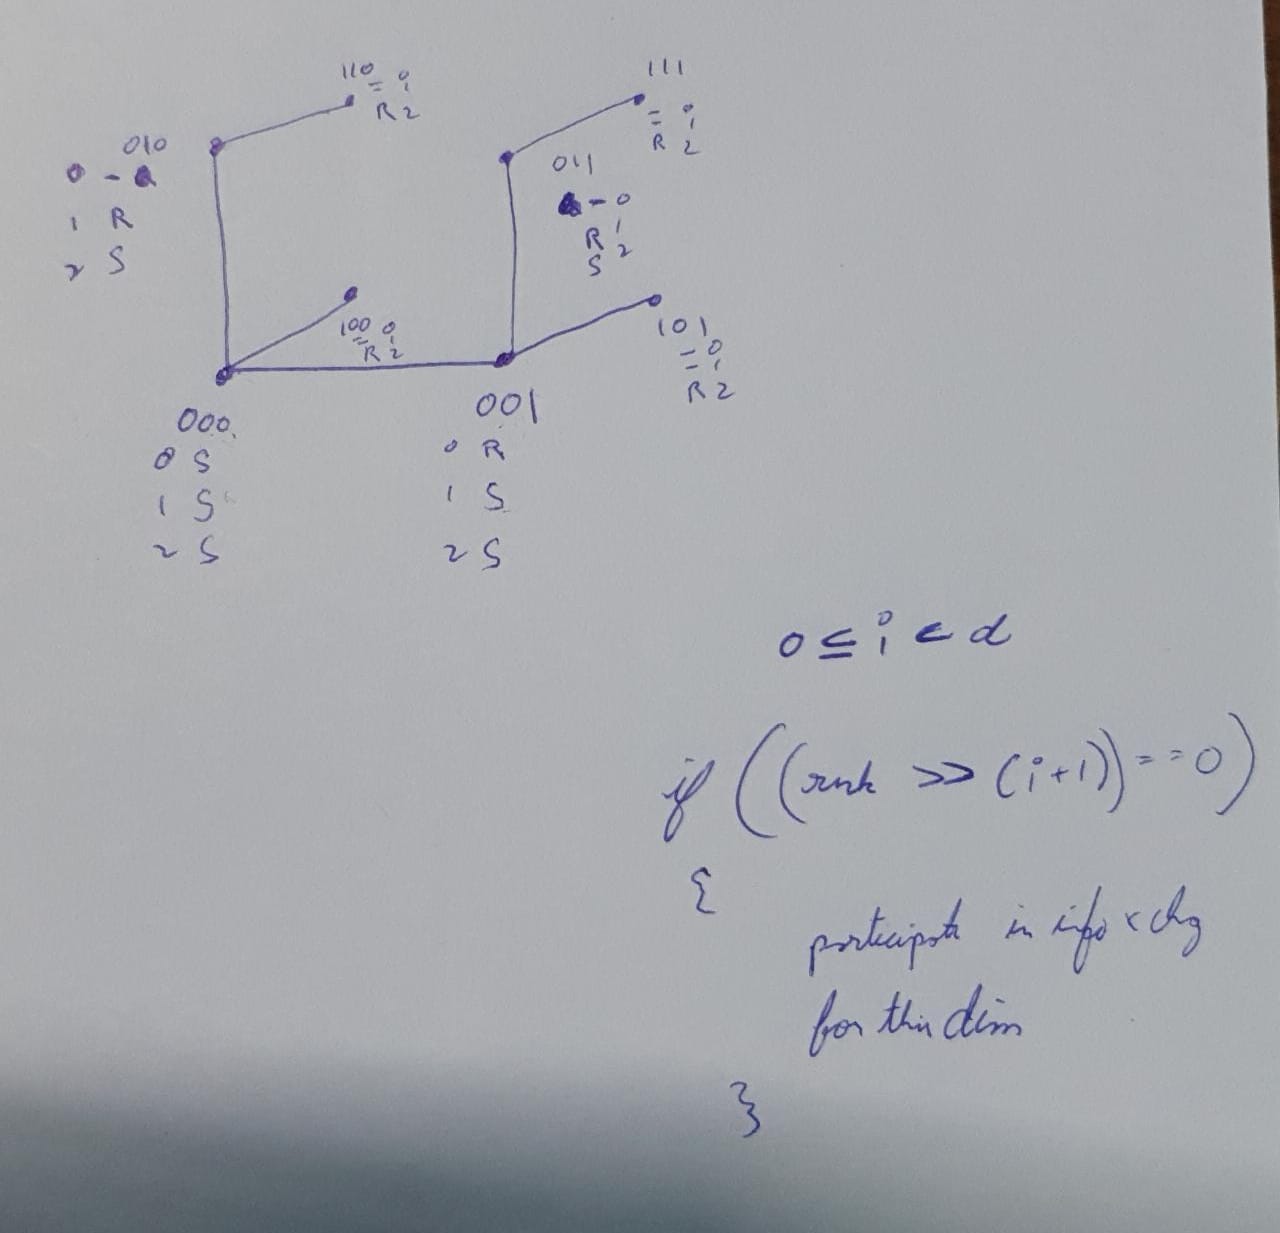 110
- 0
- 1
R 2
111
- 0
- 1
R 2
010
0 -
1 R
2 S
011
- 0
R 1
S 2
100
- 0
- 1
R 2
101
- 0
- 1
R 2
000
0 S
1 S
2 S
001
0 R
1 S
2 S
0 ≤ i < d
if ((rank >> (i+1)) == 0)
{
participate in info xchg
for this dim
}